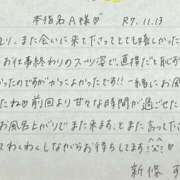 本指名A様♡ R7.11.13
より、また会いに来て下さってとても嬉しかった
お仕事終わりのスーツ姿で、直接だと恥ずか
ったのですがかっこよかったです!!一緒にお風
たね♡前回より甘々な時間が過ごせた
お風呂上がりでまた来ます、とまた言って下さ
てわくわくしながらお待ちしてます!
新保